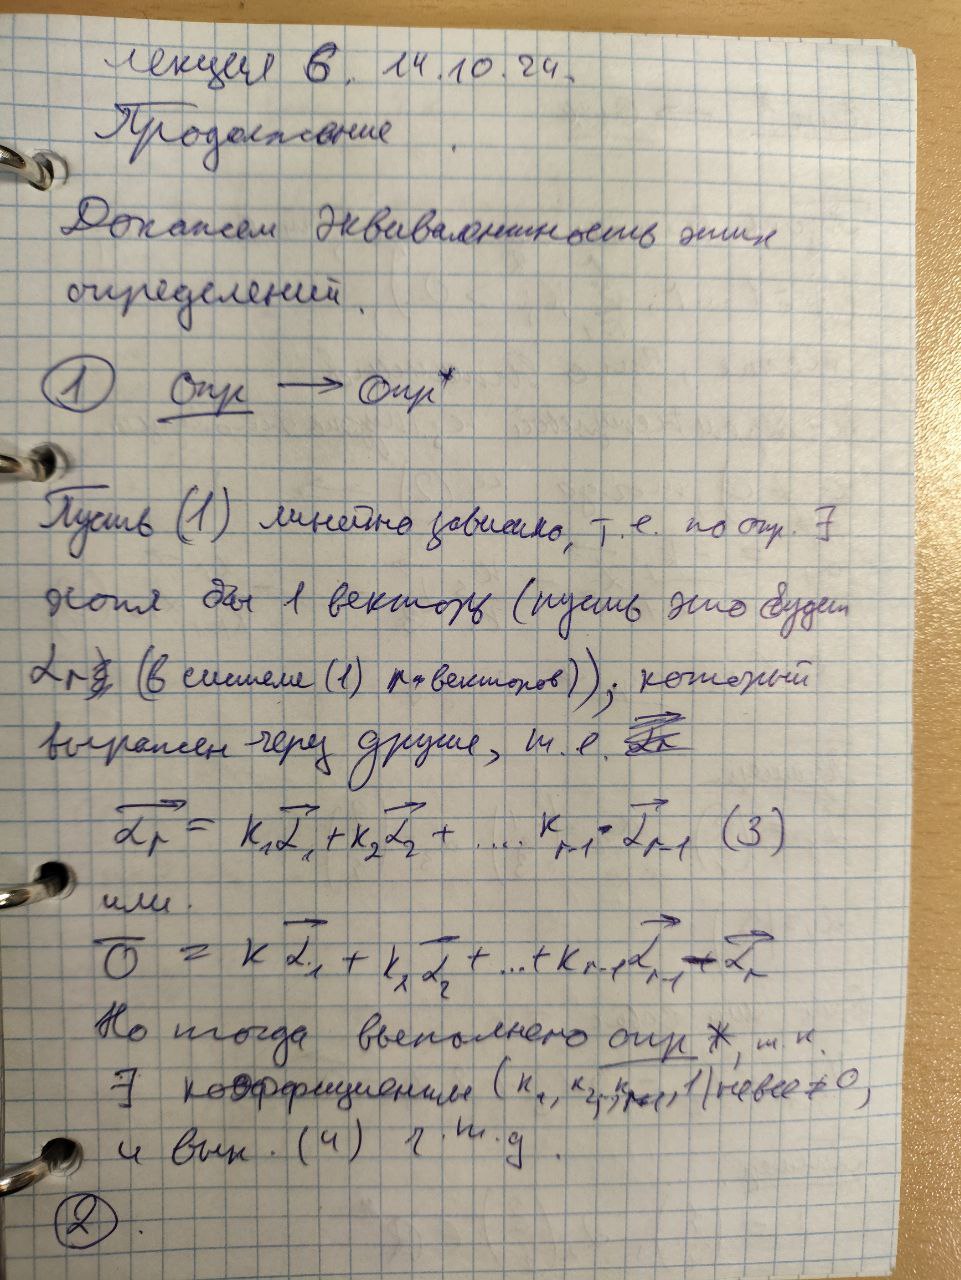 лекция 6. 14.10.24.
Продолжение
Докажем эквивалентность этих
определений.
① Опр → Опр*
Пусть (1) линейно зависимо, т.е. по опр. ∃
хотя бы 1 вектор (пусть это будет
αr (в системе (1) r-векторов)); который
выражен через другие, т.е.
αr = k₁α₁ + k₂α₂ + .... kr-1 · αr-1 (3)
или.
0 = k α₁ + k₂ α₂ + ... + kr-1 αr-1 - αr
Но тогда выполнено опр *, т.к.
∃ коэффициенты (k₁, k₂, kr-1, 1) не все ≠ 0,
и вып. (4) ч.т.д.
②.